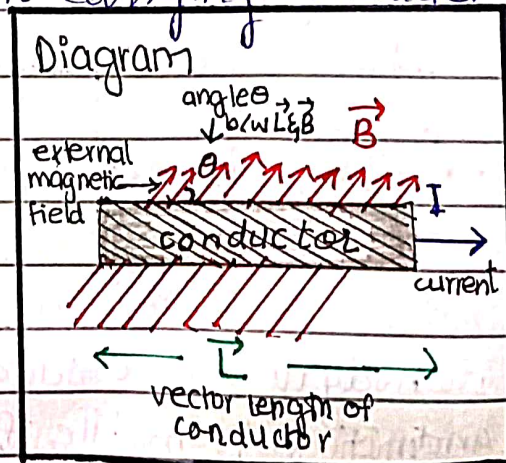 Diagram
angle θ
b/w L⃗ & B⃗
B⃗
external
magnetic
field
θ
I
conductor
current
L⃗
vector length of
conductor